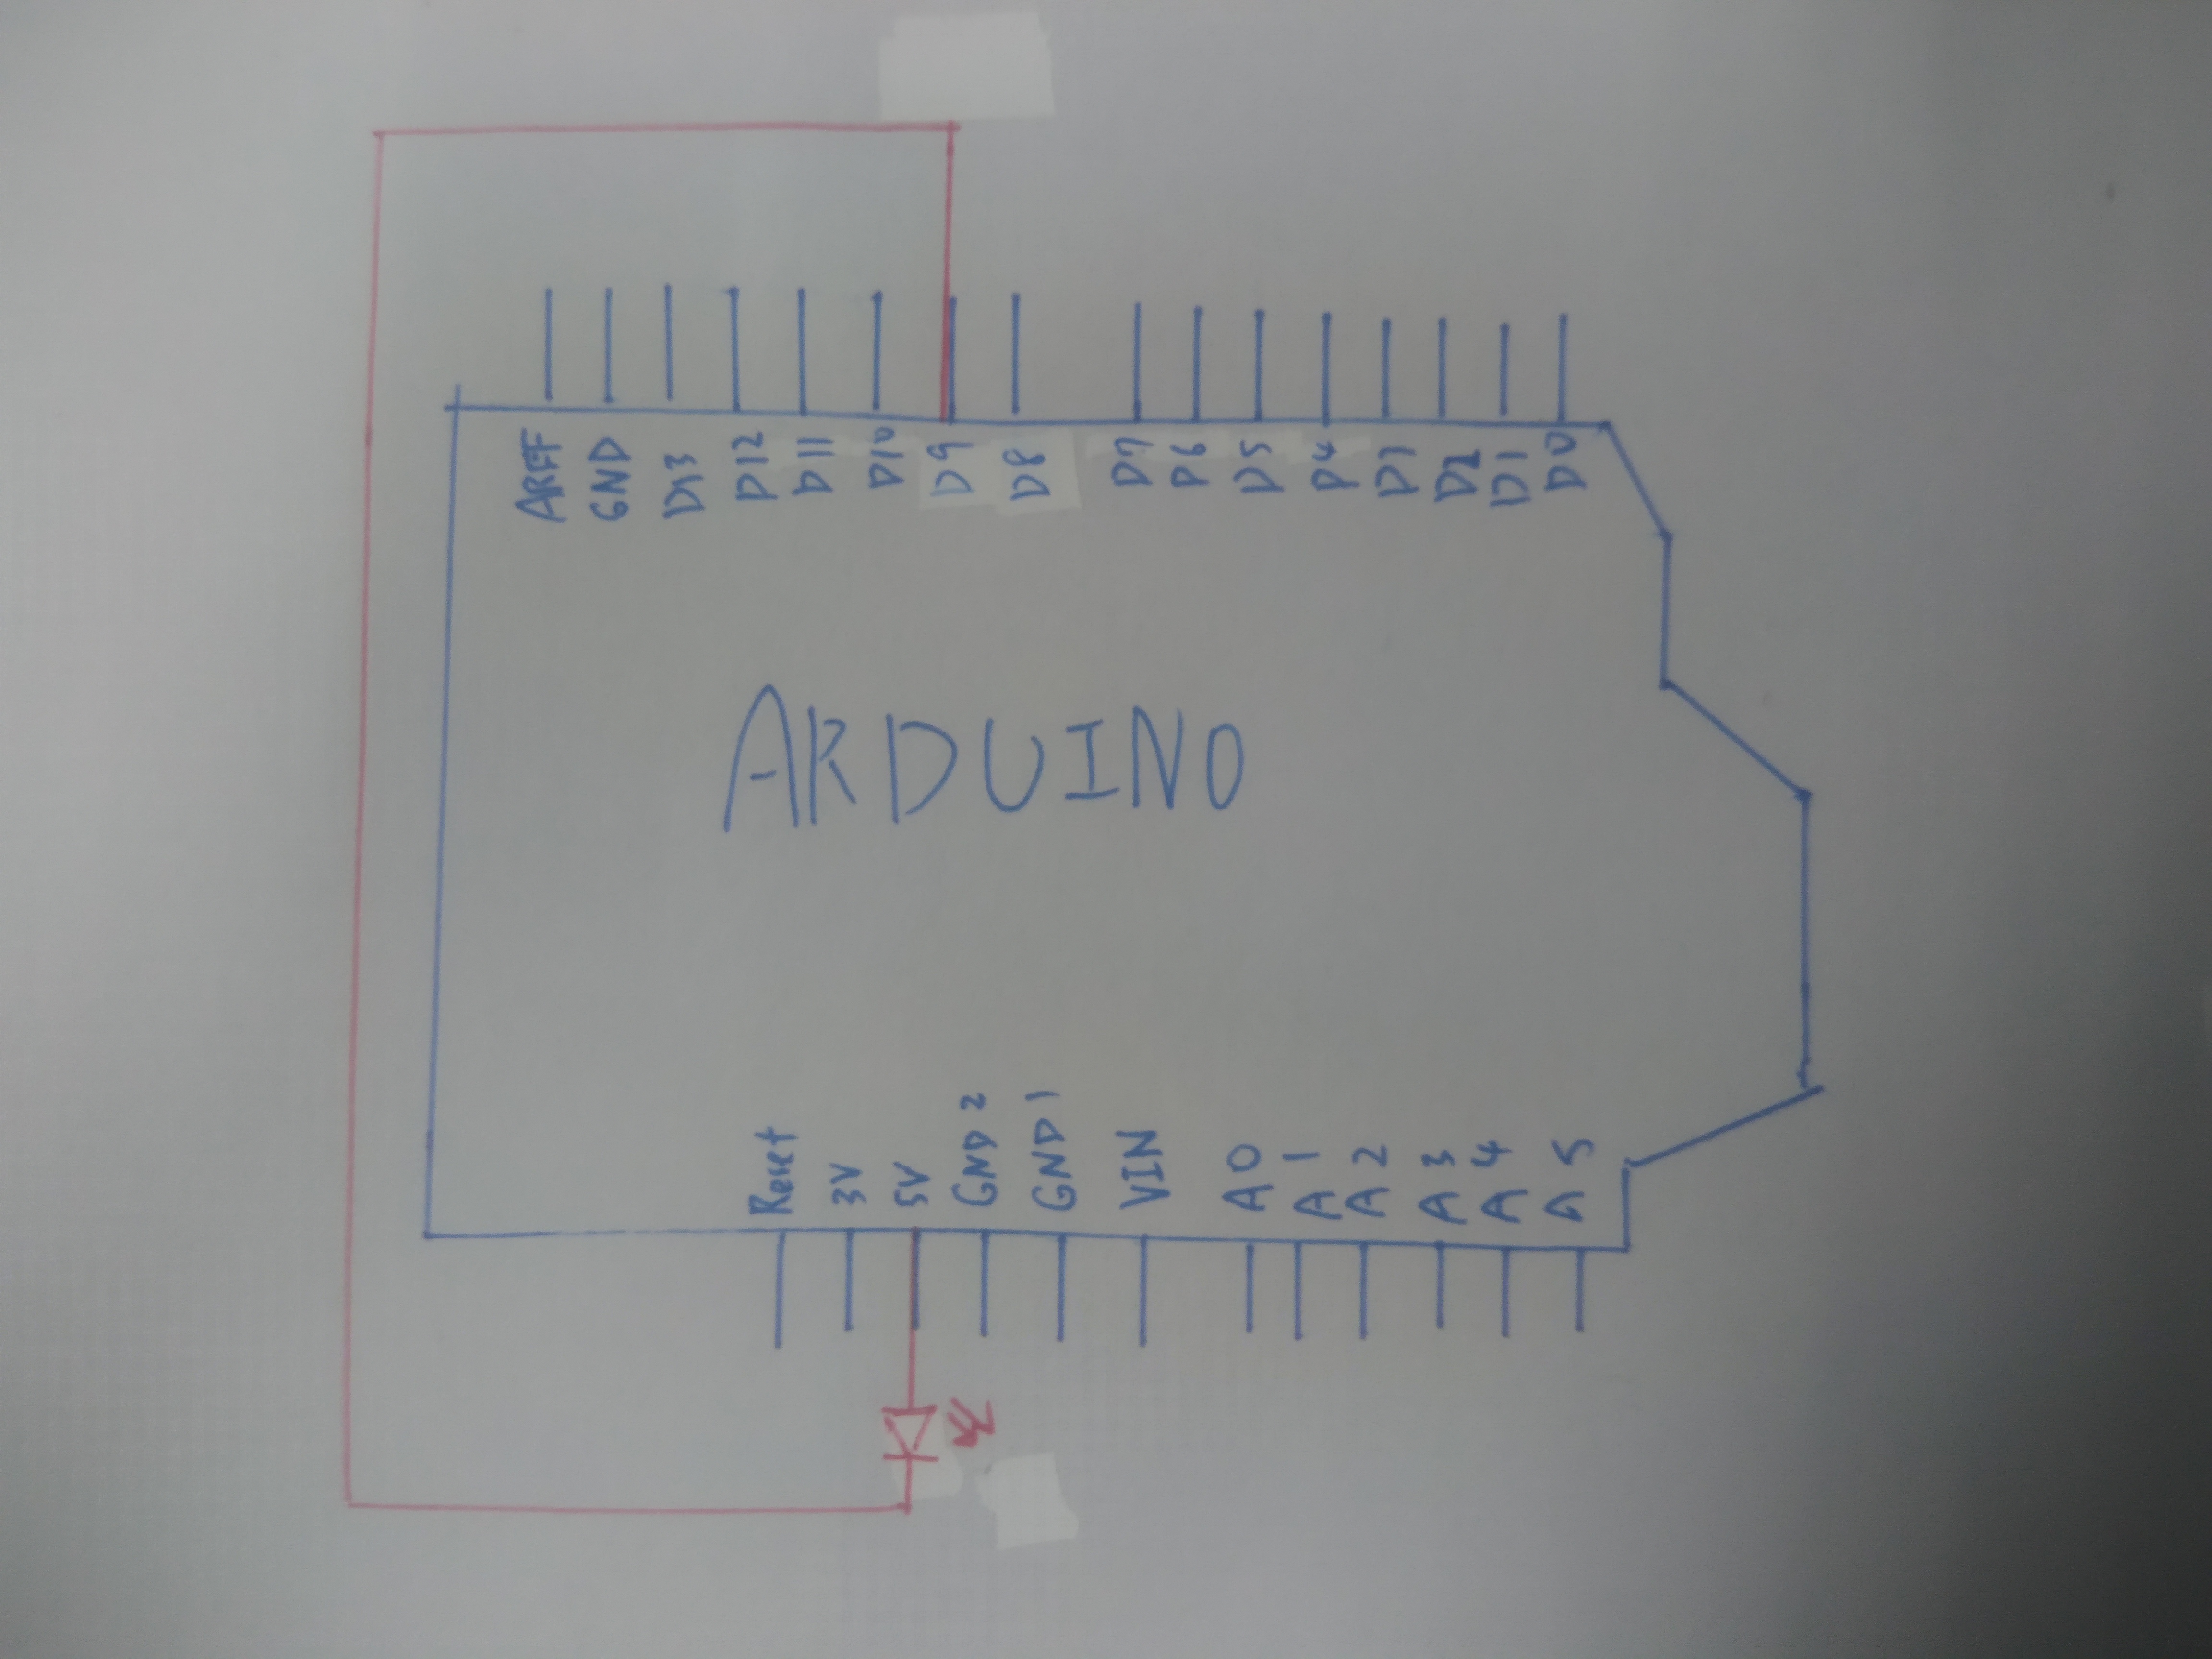 AREF GND D13 D12 D11 D10 D9 D8 D7 D6 D5 D4 D3 D2 D1 D0
ARDUINO
Reset 3V 5V GND2 GND1 VIN A0 A1 A2 A3 A4 A5